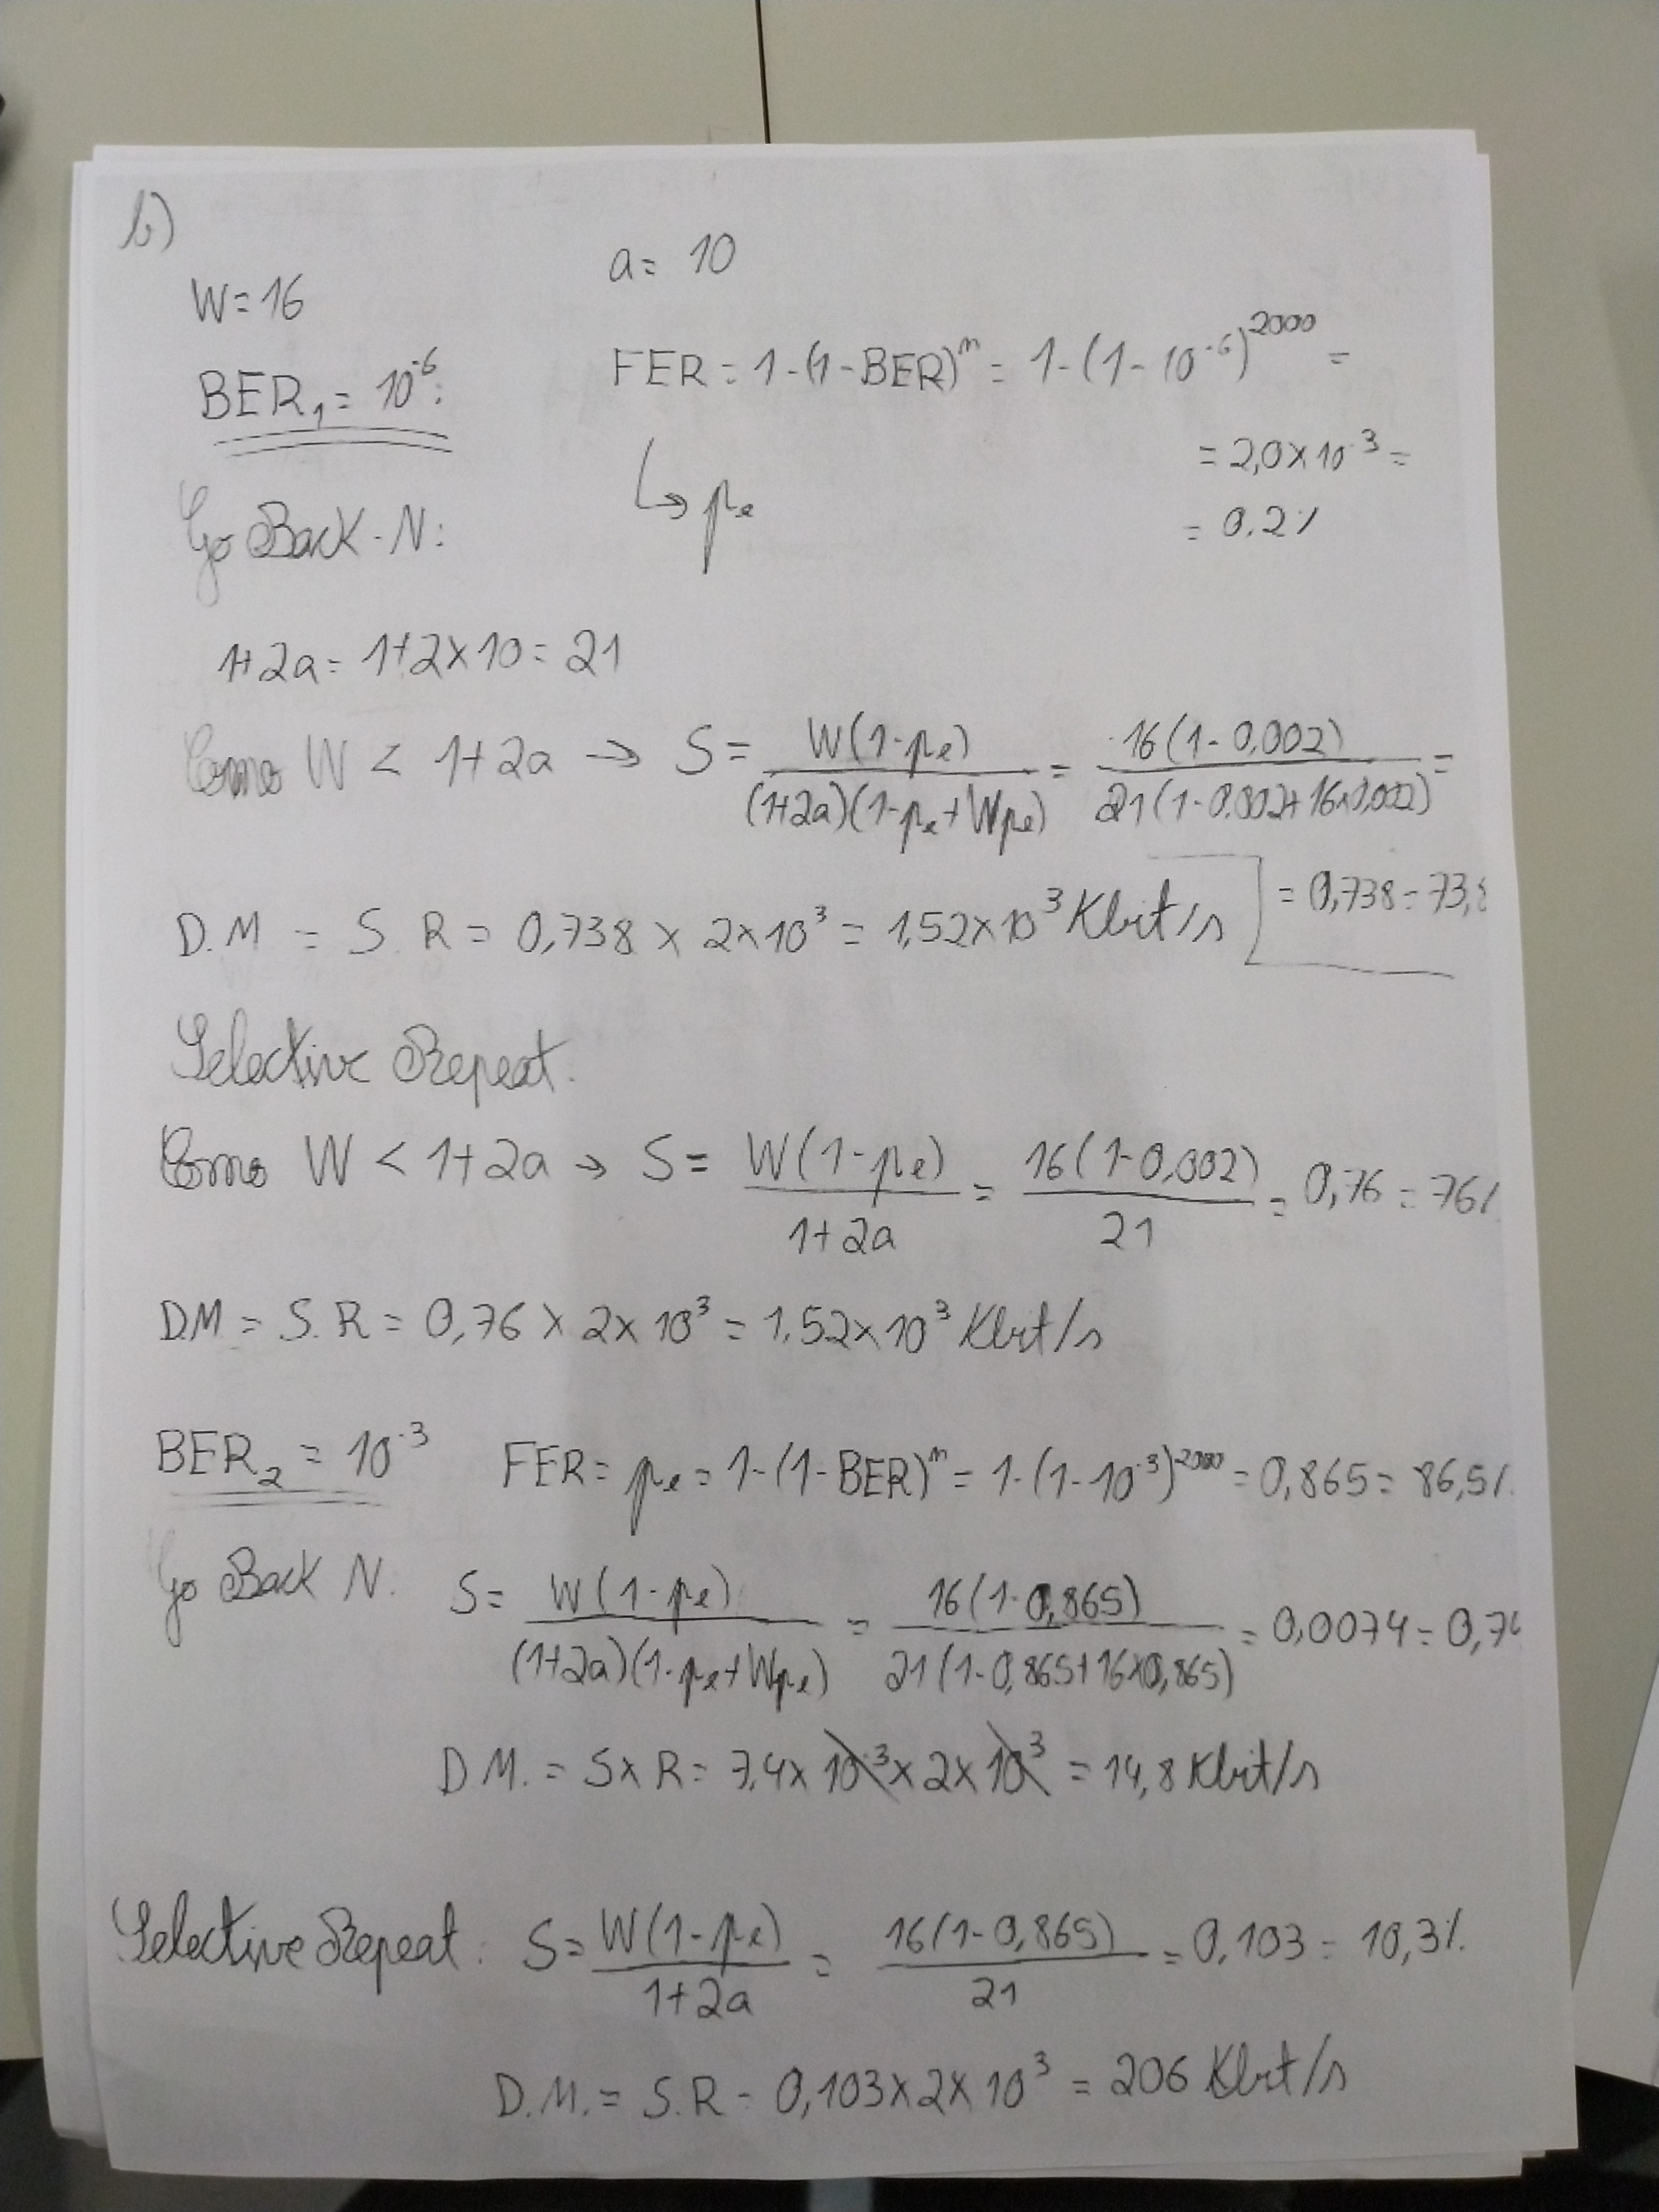 b)
a= 10
W=16
BER₁ = 10⁻⁶:
FER = 1-(1-BER)ⁿ = 1-(1-10⁻⁶)²⁰⁰⁰ =
= 2,0×10⁻³ =
↳ pₑ
= 0.2%
Go Back-N:
1+2a= 1+2×10= 21
Como W < 1+2a → S= W(1-pₑ) / (1+2a)(1-pₑ+Wpₑ) = 16(1-0,002) / 21(1-0,002+16×0,002) =
= 0,738 = 73,8
D.M = S.R = 0,738 × 2×10³ = 1,52×10³ Kbit/s
Selective Repeat.
Como W < 1+2a → S= W(1-pₑ) / 1+2a = 16(1-0,002) / 21 = 0,76 = 76%
D.M = S.R = 0,76 × 2×10³ = 1.52×10³ Kbit/s
BER₂ = 10⁻³ FER= pₑ = 1-(1-BER)ⁿ = 1-(1-10⁻³)²⁰⁰⁰ = 0,865 = 86,5%
Go Back N. S= W(1-pₑ) / (1+2a)(1-pₑ+Wpₑ) = 16(1-0,865) / 21(1-0,865+16×0,865) = 0,0074 = 0,74
D.M. = S×R = 7,4×10⁻³×2×10³ = 14,8 Kbit/s
Selective Repeat: S= W(1-pₑ) / 1+2a = 16(1-0,865) / 21 = 0,103 = 10,3%
D.M. = S.R = 0,103×2×10³ = 206 Kbit/s